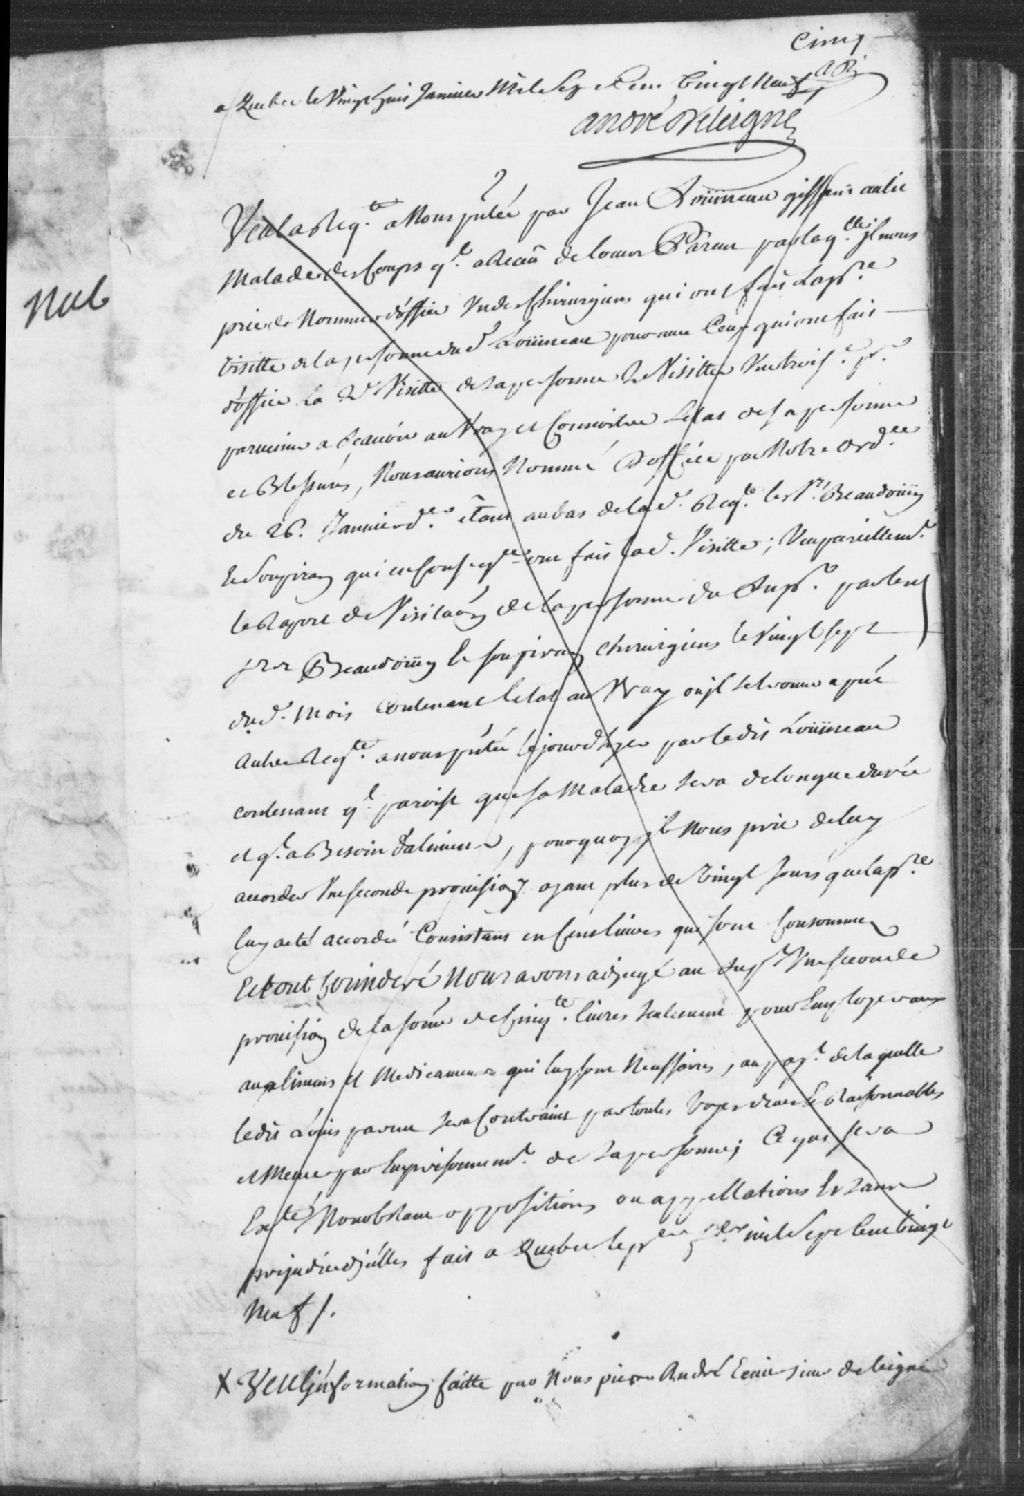 Cinq
a Quebec le Vingt huit Janvier Mil Sept Cent Vingt Neuf
André Deleigne
Veu la Req.te a Nous p̃ntée par Jean Loüineau gissant au lit
Malade des Coups q.l a Recû de Louis Parent par laq.lle jl nous
prie de Nommer d'office Un des Chirurgiens qui ont fait la p.re
Visitte de la personne du d. Loüineau pour avec Ceux qui ont fait
d'office la 2.e Visitte de sa personne le Visitter Une troise.
parvenir a scavoir au Vray et Connoitre l'etat de sa personne
et Blessures, Nous aurions Nommé d'office par Notre Ord.ce
du 26. Janvier d.er Etant au bas de la d. Req.te les S.rs Beaudoüin
le Soupiran qui en Conseq.ce ont fait lad. Visitte; Veu pareillem.t
le Raport de Visitaõn de la personne du Sup.t par les
S.rs Beaudoüin le soupiran chirurgiens le Vingt sept
dud. Mois Contenant l'etat au Vray ou jl se trouve a pñt
Autre Req.te a nous p̃ntée le jourd'huy par le dit Loüineau
contenant q.l paroist que sa Maladie sera de longue durée
et q.l a Besoin d'alimens, pourquoy jl Nous prie de luy
acorder Une seconde provision ayant plus de Vingt Jours que la p.re
luy a eté accordée Consistant en Cent livres qui sont Consommez
Et tout Consideré Nous avons adjugé au Sup.t Une seconde
provision de la som̃e de Cinq.te livres seulement pour Employer aux
aux alimens et Medicamens qui luy sont Necessaires, au pay.t de laquelle
ledit Louis parent sera Contraint par toutes Voyes deües et Raisonnables
et Meme par Emprisonnem.t de sa personne; Ce qui sera
Ex.té Nonobstant oppositions ou appellations Et sans
prejudice d'jcelles fait a Quebec le p.er f.er mil Sept Cent Vingt
Neuf /.
Nul
X Veu l'jnformation faitte par Nous pierre André Ecuier sieur de leigne